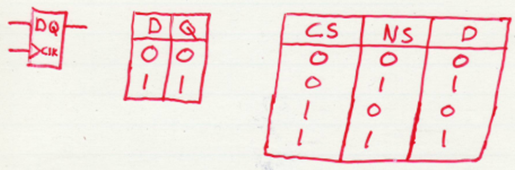 D Q
CLK
D Q
0 0
1 1
CS NS D
0 0 0
0 1 1
1 0 0
1 1 1